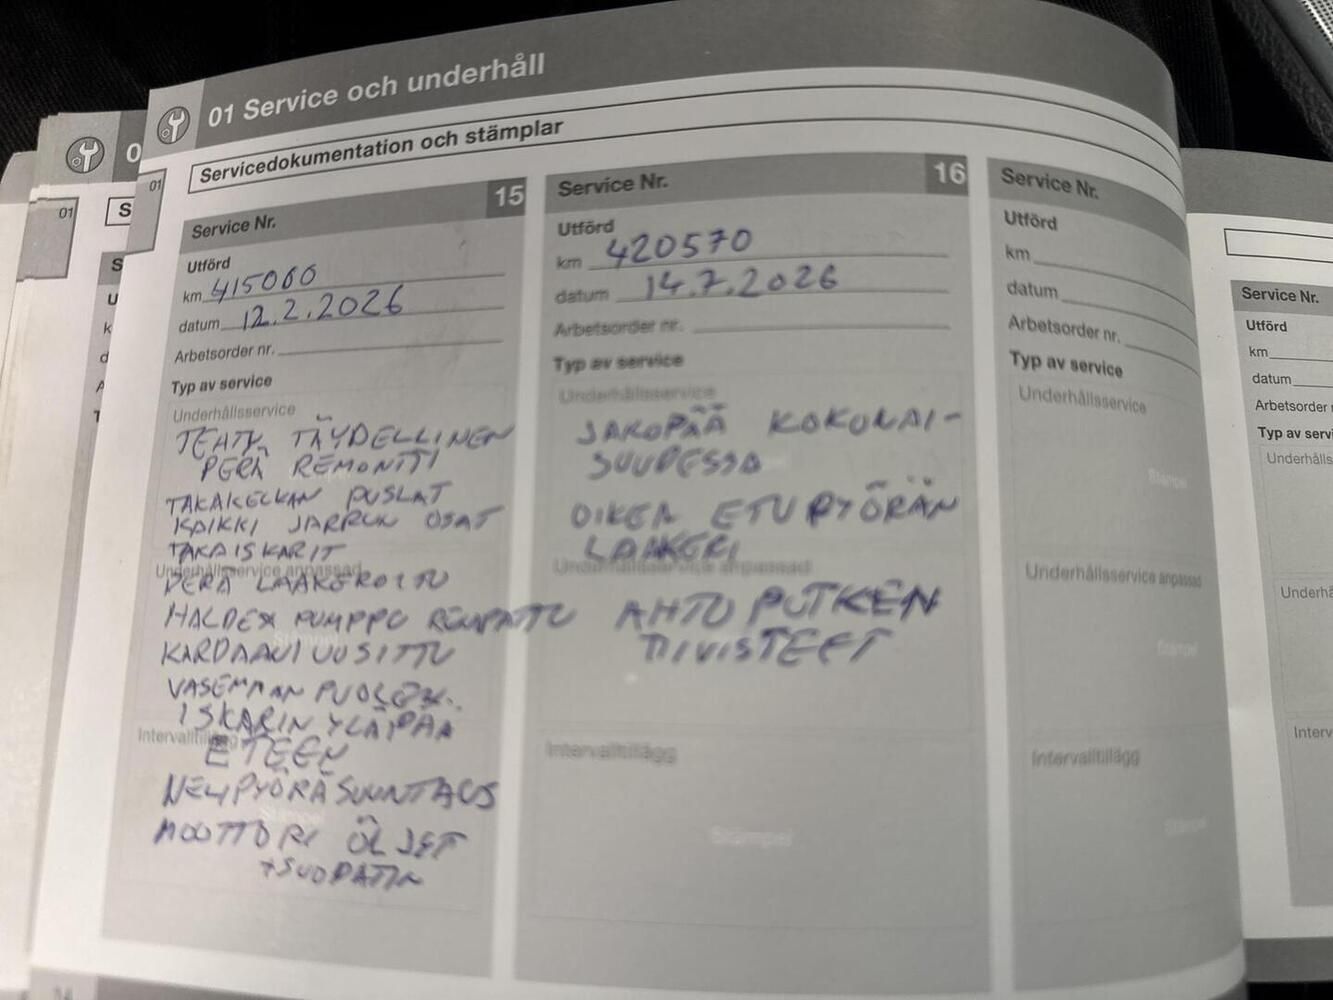 01 Service och underhåll
Servicedokumentation och stämplar
01
Service Nr. 15
Utförd
km 415000
datum 12.2.2026
Arbetsorder nr.
Typ av service
Underhållsservice
TEHTY TÄYDELLINEN
PERÄ REMONTTI
TAKAKELKAN PUSLAT
KAIKKI JARRUN OSAT
TAKAISKARIT
Underhållsservice anpassad
PERÄ LAAKEROITU
HALDEX PUMPPU REMPATTU
KARDAANI UUSITTU
VASEMMAN PUOLEN
ISKARIN YLÄPÄÄ
Intervalltillägg
ETEEN
NELIPYÖRÄSUUNTAUS
MOOTTORI ÖLJYT
+SUODATIN
Service Nr. 16
Utförd
km 420570
datum 14.7.2026
Arbetsorder nr.
Typ av service
Underhållsservice
JAKOPÄÄ KOKONAI-
SUUDESSA
OIKEA ETUPYÖRÄN
LAAKERI
Underhållsservice anpassad
AHTO PUTKEN
TIIVISTEET
Intervalltillägg
Stämpel
Service Nr.
Utförd
km
datum
Arbetsorder nr.
Typ av service
Underhållsservice
Stämpel
Underhållsservice anpassad
Stämpel
Intervalltillägg
Stämpel
01
Service Nr.
Utförd
km
datum
Arbetsorder
Typ av